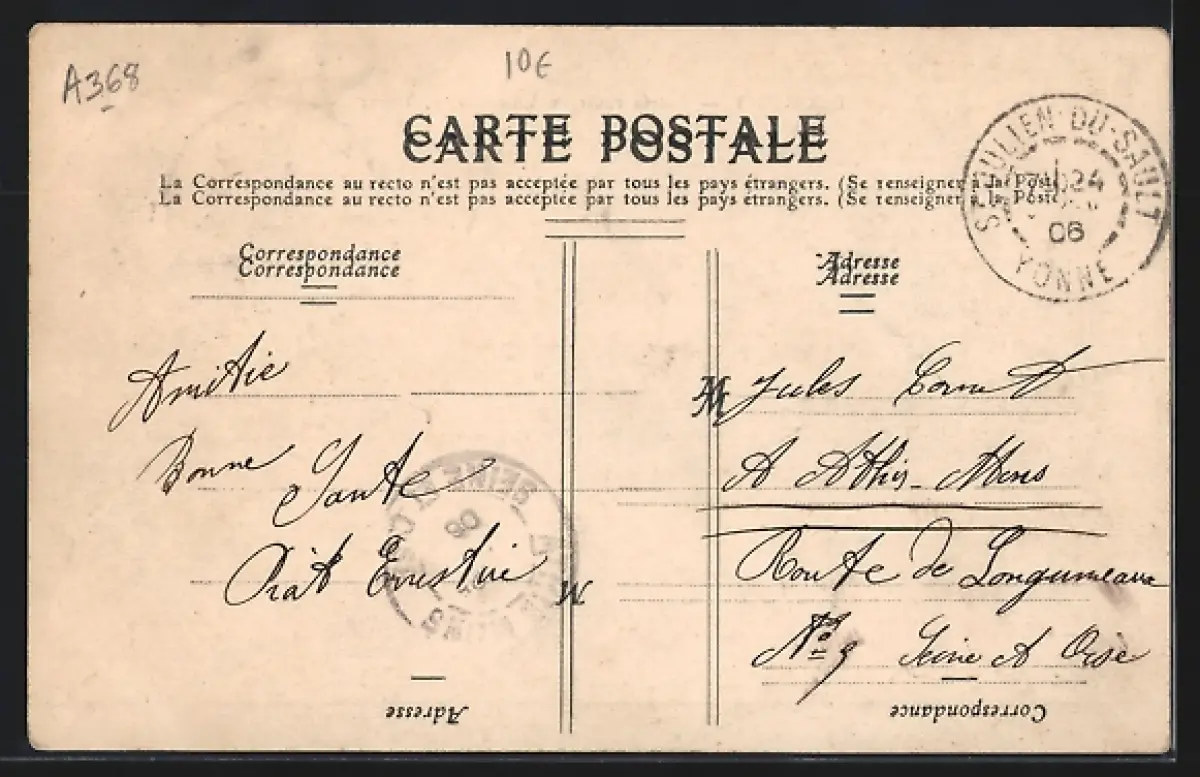 A368
10€
CARTE POSTALE
CARTE POSTALE
La Correspondance au recto n'est pas acceptée par tous les pays étrangers. (Se renseigner à la Poste
La Correspondance au recto n'est pas acceptée par tous les pays étrangers. (Se renseigner à la Poste
ST JULIEN-DU-SAULT
24
06
YONNE
Correspondance
Correspondance
Amitie
Bonne Sante
Ernestine
SEINE
06
MONS
Adresse
Adresse
Adresse
M
M
Jules
A Athis-Mons
Route de Longumeaux
No 9 Seine et Oise
M
Correspondance